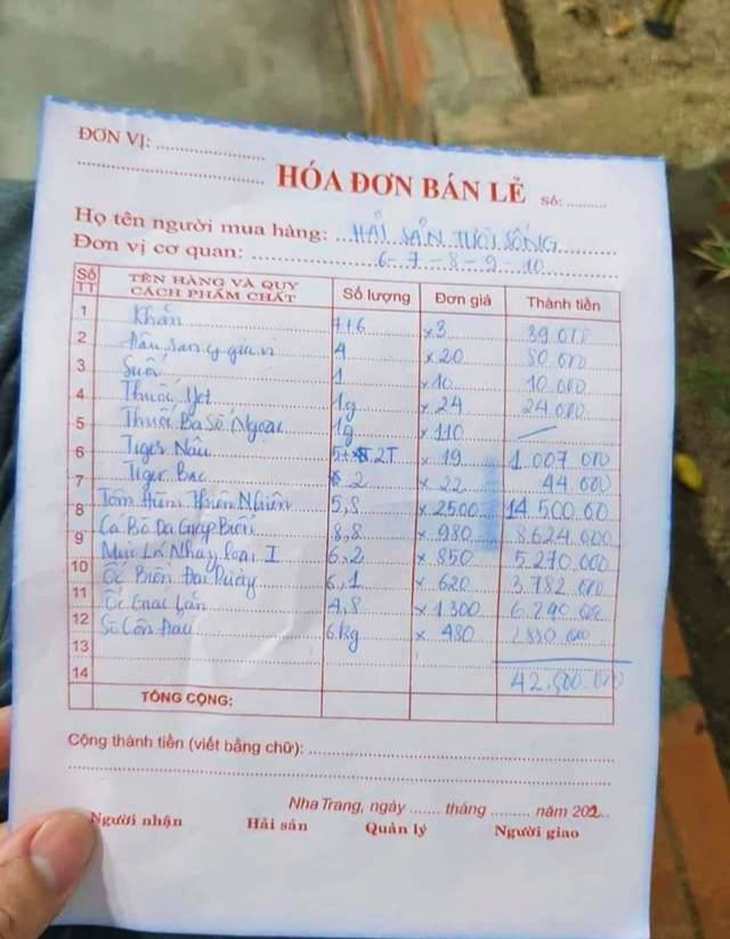 ĐƠN VỊ: ....................
....................
HÓA ĐƠN BÁN LẺ Số: .........
Họ tên người mua hàng: HẢI SẢN TƯƠI SỐNG
Đơn vị cơ quan: 6-7-8-9-10
Số TT TÊN HÀNG VÀ QUY CÁCH PHẨM CHẤT Số lượng Đơn giá Thành tiền
1 Khăn 7+6 x3 39 000
2 4 x20 80 000
3 Suối 1 x10 10 000
4 Thuốc Jet 1g x 24 24 000
5 Thuốc Ba Số Ngoại 1g x 110 —
6 Tiger Nâu x 19 1.007 000
7 Tiger Bạc 2 x 22 44 000
8 Tôm Hùm Thiên Nhiên 5,8 x 2500 14 500.00
9 Cá Bò Da Giáp Biển 8,8 x 980 8.624.000
10 Mực Lá Nháy loại I 6,2 x 850 5.270.000
11 Ốc Biển 6,1 x 620 3.782 000
12 Ốc 4,8 x 1300 6.240 000
13 Sò Côn Đảo 6kg x 480 2.880 000
14 42.500.000
TỔNG CỘNG:
Cộng thành tiền (viết bằng chữ): ....................
Nha Trang, ngày ....... tháng ......... năm 202...
Người nhận Hải sản Quản lý Người giao